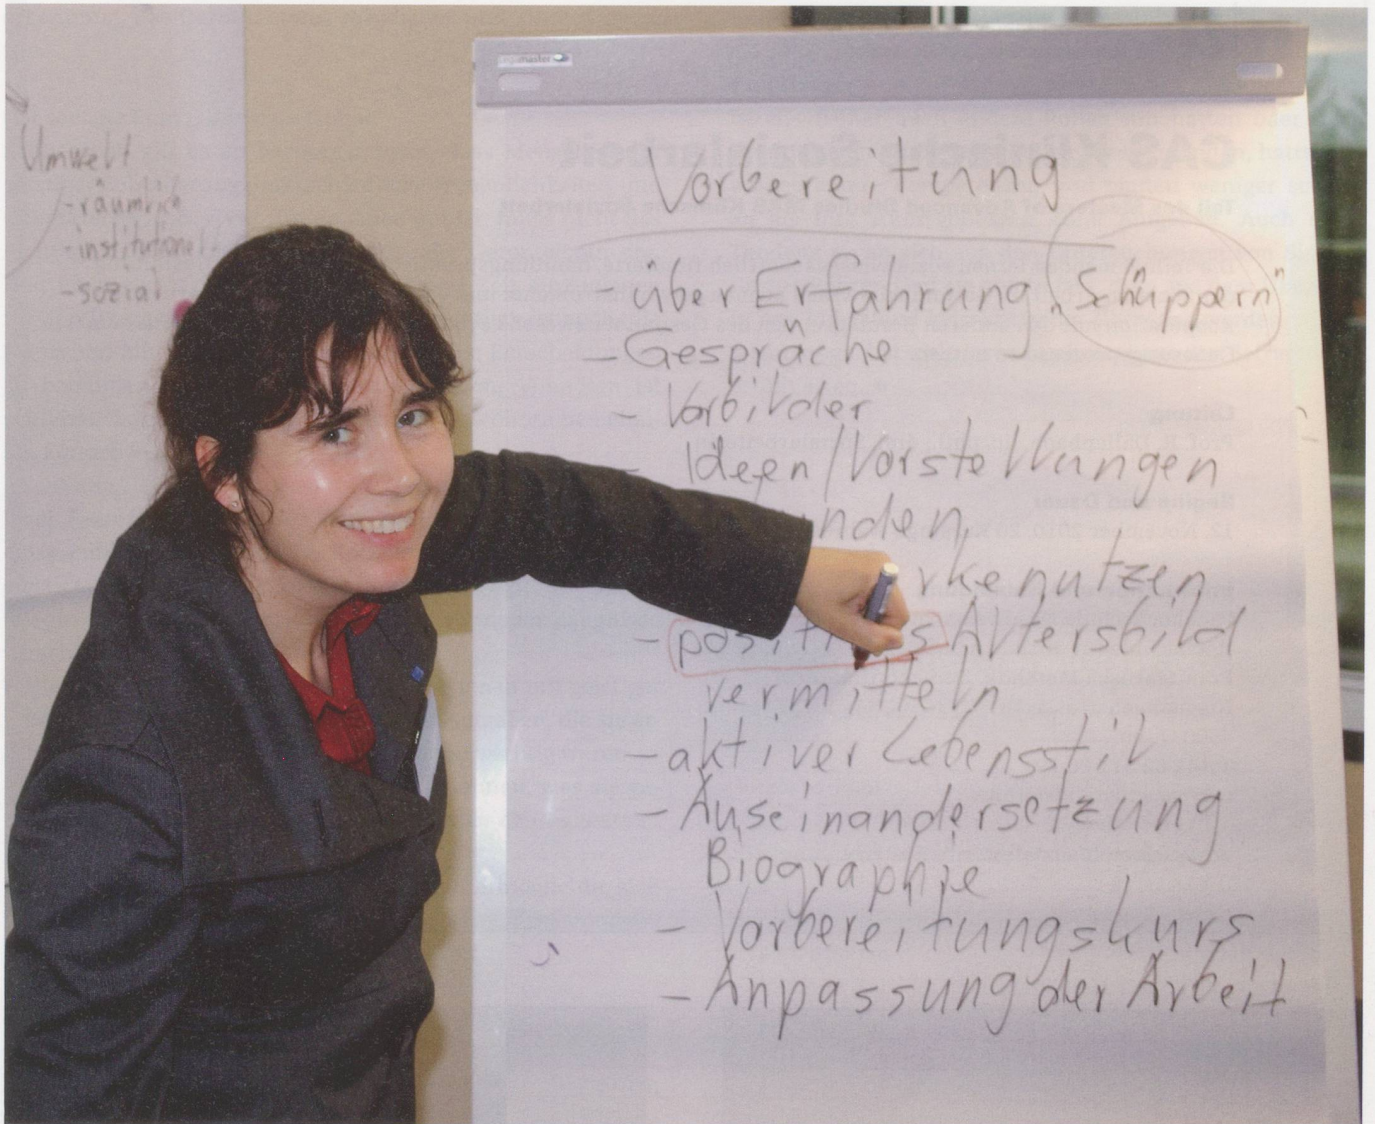 Umwelt
-räumlich
-institutionell
-sozial
legamaster
Vorbereitung
- über Erfahrung „Schnuppern"
- Gespräche
- Vorbilder
- Ideen/Vorstellungen
nden
rke nutzen
- positives Altersbild
vermitteln
- aktiver Lebensstil
- Auseinandersetzung
Biographie
- Vorbereitungskurs
- Anpassung der Arbeit